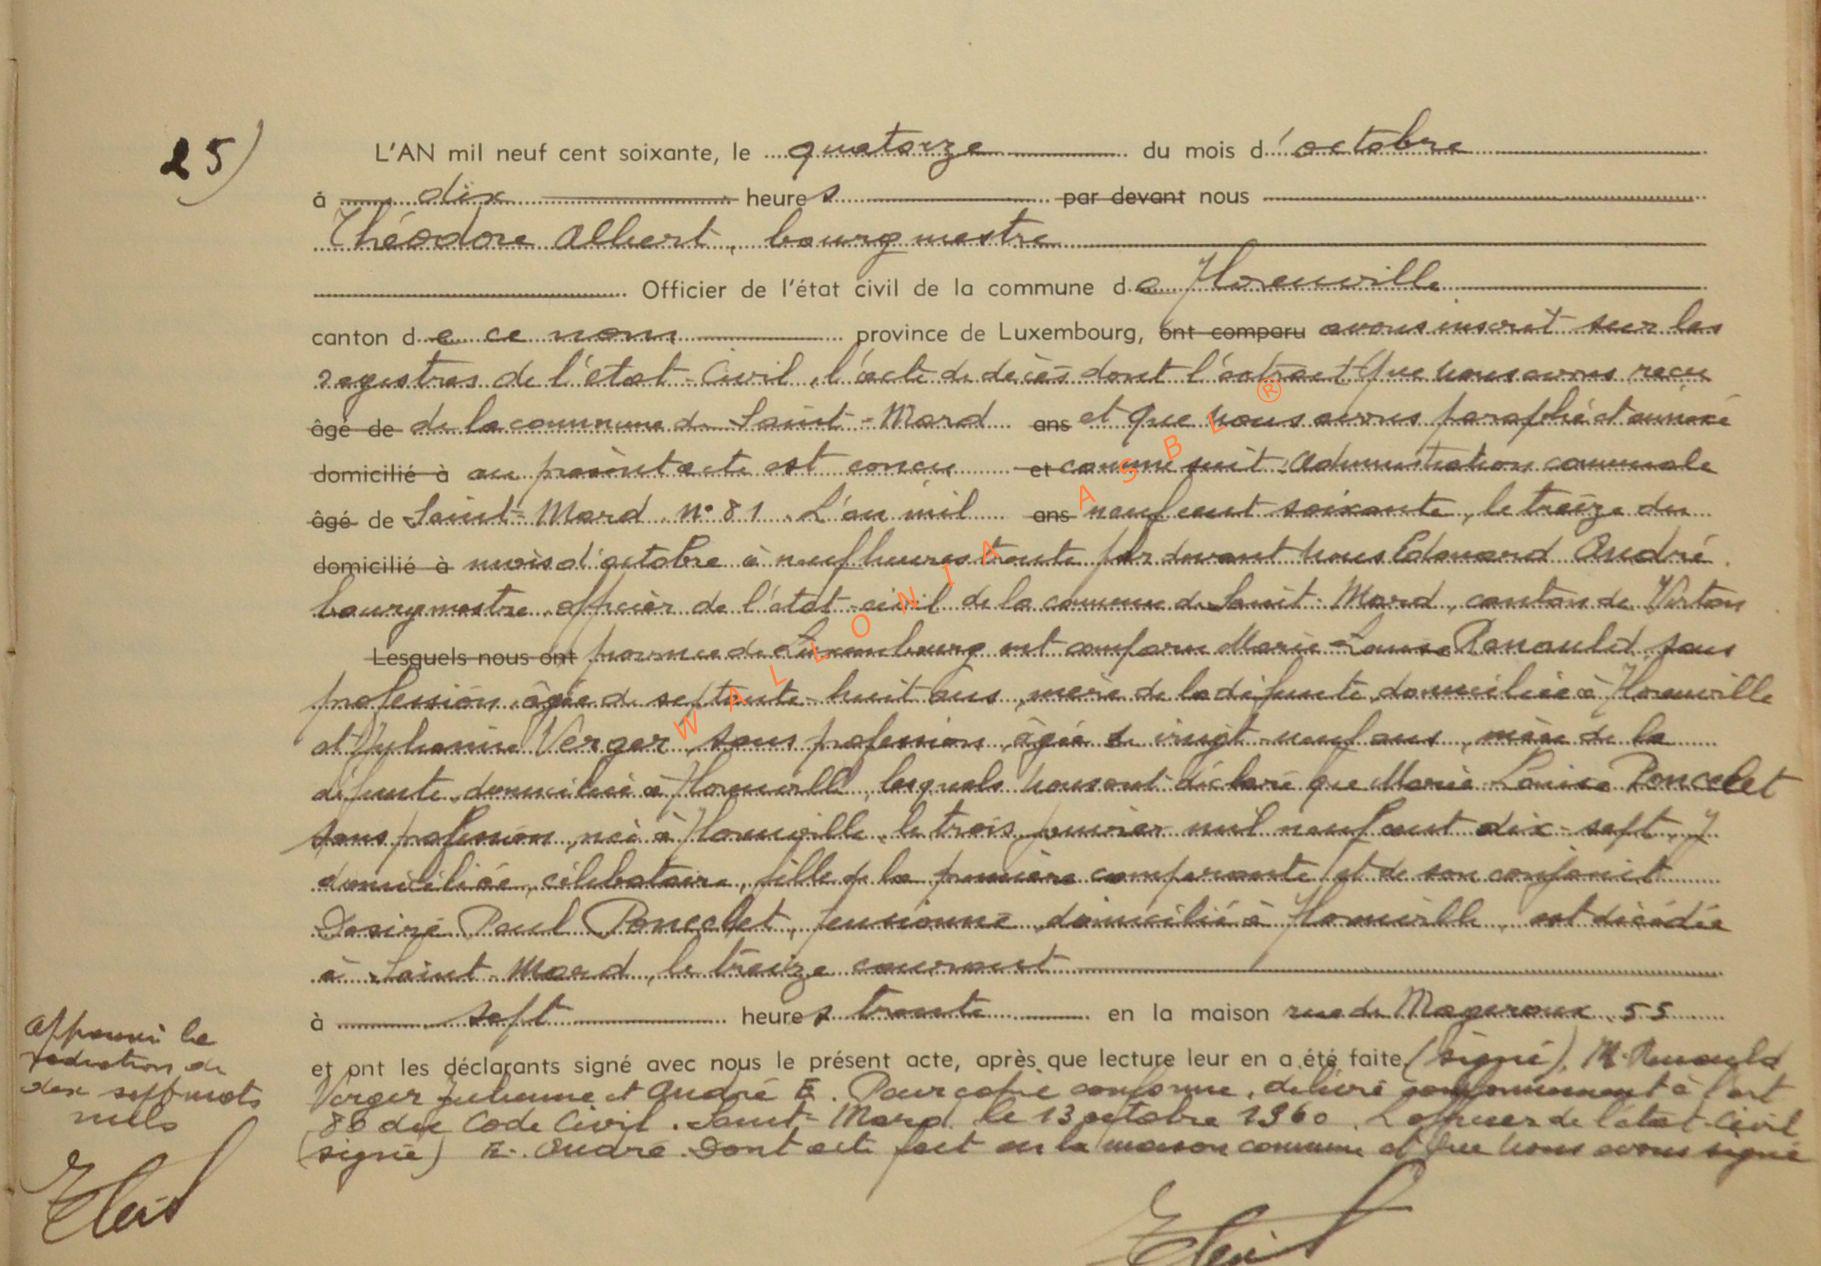 25)
L'AN mil neuf cent soixante, le quatorze du mois d'octobre
à dix heures par devant nous
Théodore Albert, bourgmestre
Officier de l'état civil de la commune de Florenville
canton de ce nom province de Luxembourg, ont comparu avons inscrit sur les
registres de l'état-Civil, l'acte de décès dont l'extrait que nous avons reçu
âgé de de la commune de Saint-Mard ans et que nous avons paraphé et annexé
domicilié à au présent acte est conçu et comme suit. Administration communale
âgé de Saint-Mard. N° 81. L'an mil ans neuf cent soixante, le treize du
domicilié à mois d'octobre à neuf heures trente par devant nous Edouard André
bourgmestre officier de l'état-civil de la commune de Saint-Mard, canton de Virton
Lesquels nous ont province de Luxembourg ont comparu Marie Louise Renauld sans
profession, âgée de septante-huit ans, mère de la défunte, domiciliée à Florenville
et Julienne Verger, sans profession, âgée de vingt-neuf ans, nièce de la
défunte, domiciliée à Florenville, lesquels nous ont déclaré que Marie Louise Poncelet
sans profession, née à Florenville, le trois janvier mil neuf cent dix-sept, y
domiciliée, célibataire, fille de la première comparante et de son conjoint
Désiré Paul Poncelet, pensionné, domicilié à Florenville, est décédée
à Saint-Mard, le treize courant
à sept heures trente en la maison rue de Mageroux, 55
et ont les déclarants signé avec nous le présent acte, après que lecture leur en a été faite (signé), M. Renauld
Verger Julienne et André E. Pour copie conforme, délivré conformément à l'art
80 du Code Civil. Saint-Mard le 13 octobre 1960. L'officier de l'état-Civil
(signé) E. André. Dont acte fait en la maison commune et que nous avons signé
Approuvé la
radiation de
dix sept mots
nuls
WALLONIA ASBL ®